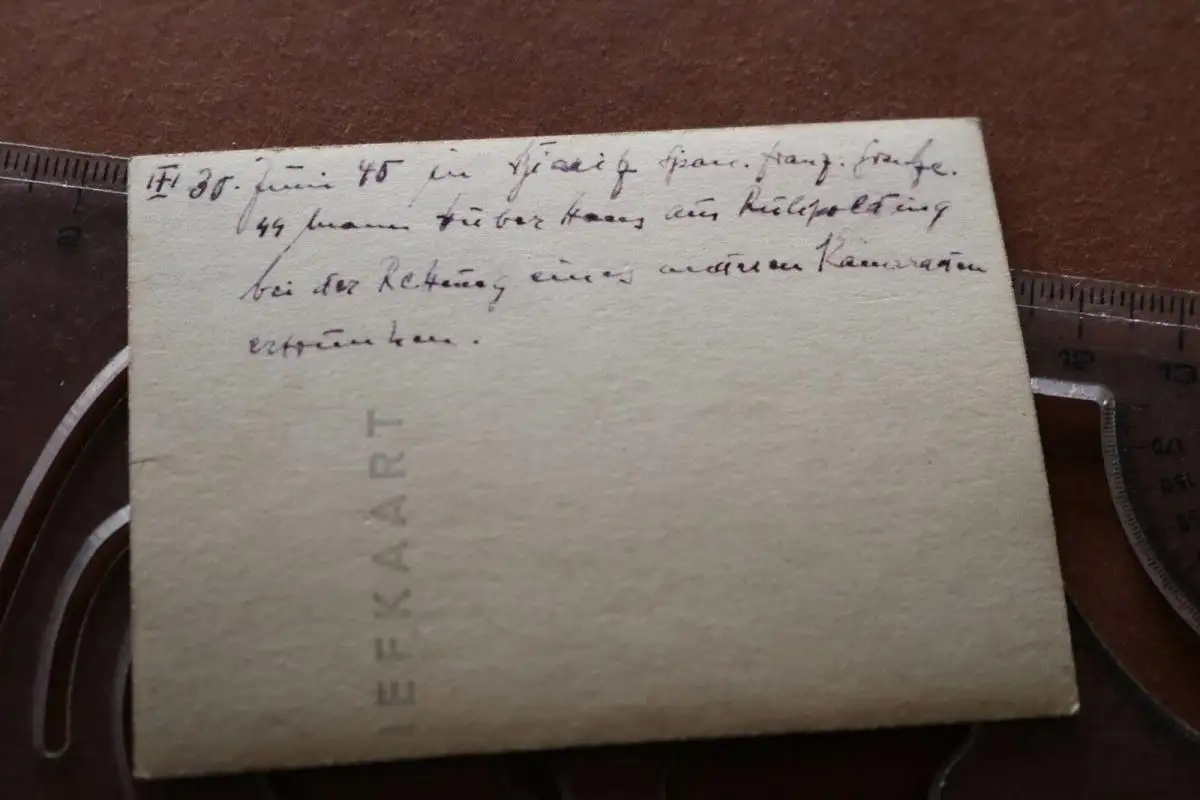 III 30. Juni 40 in span. franz. Grenze.
SS Mann Huber Hans aus Ruhpolding
bei der Rettung eines anderen Kameraden
ertrunken.
IEFKAART
12 13
170